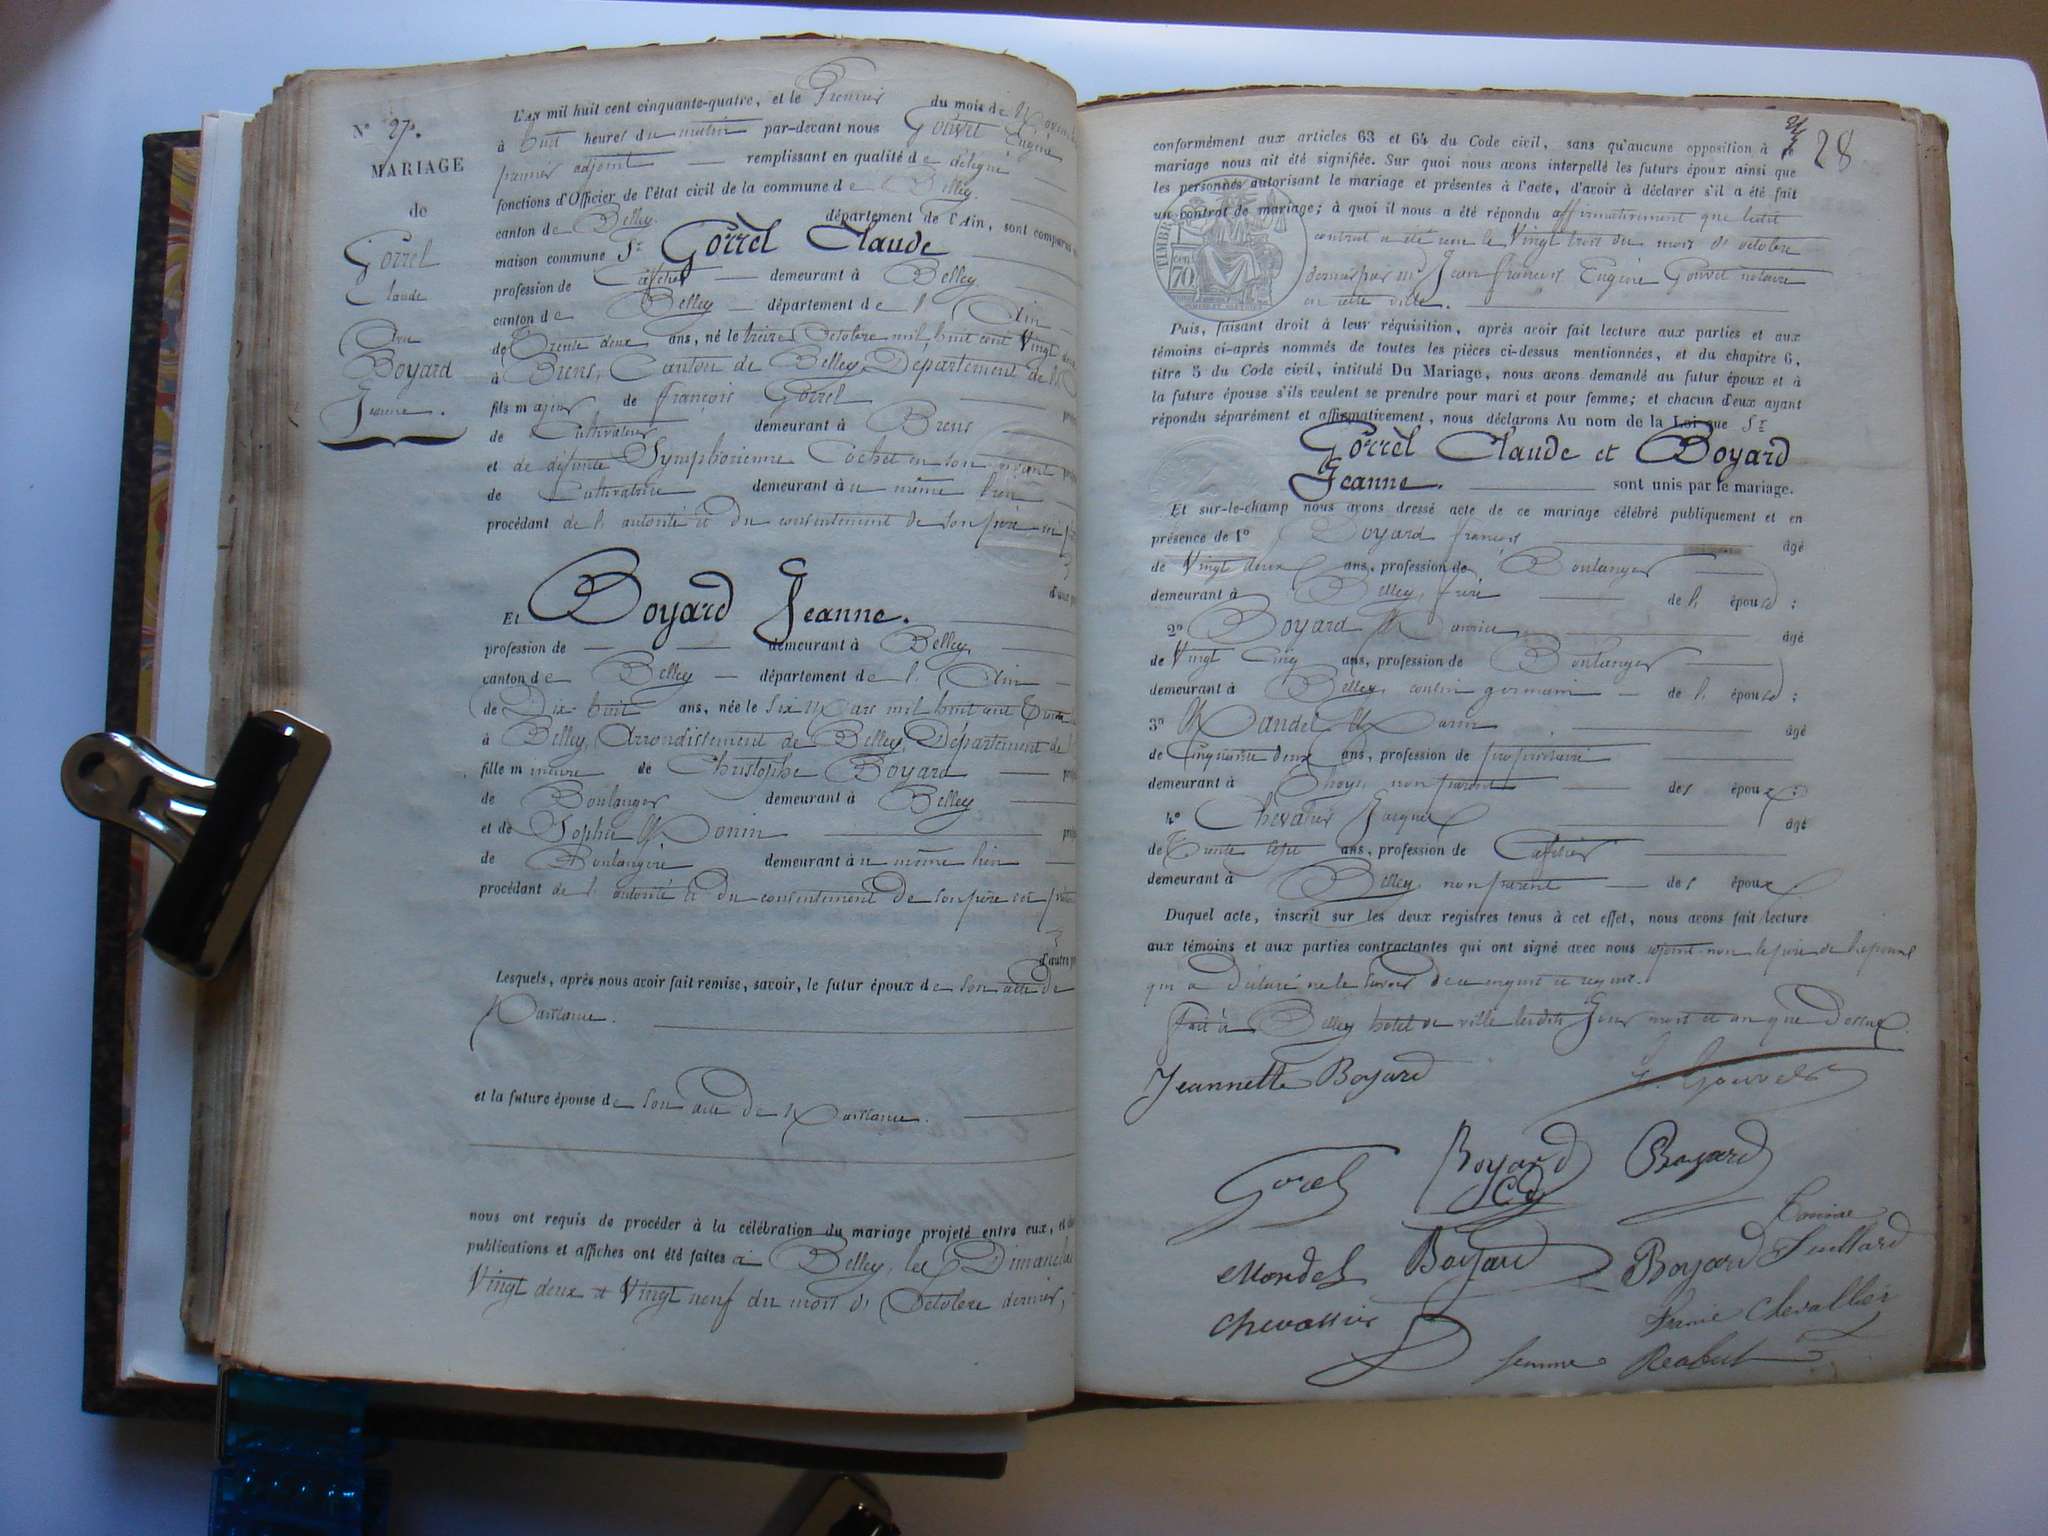 N° 27.
MARIAGE
de
Gorrel
Claude
Avec
Boyard
Jeanne.
L'an mil huit cent cinquante-quatre, et le Premier du mois de
à huit heures du matin par-devant nous Gouvet Eugène
premier adjoint remplissant en qualité de délégué
fonctions d'Officier de l'état civil de la commune de Belley
canton de Belley département de l'Ain, sont comparus
maison commune Sr. Gorrel Claude
profession de demeurant à Belley
canton de Belley département de l'Ain
de Trente deux ans, né le treize Octobre mil huit cent Vingt deux
à Brens, Canton de Belley, Département de l'
fils majeur de françois Gorrel
de Cultivateur demeurant à Brens
et de défunte Symphorienne Cochet en son vivant
de Cultivatrice demeurant au même lieu
procédant de l'autorité et du consentement de son père ici
Et Boyard Jeanne.
profession de demeurant à Belley,
canton de Belley département de l'Ain
de Dix huit ans, née le Six Mars mil huit cent Trente
à Belley, Arrondissement de Belley, Département de
fille mineure de Christophe Boyard
de Boulanger demeurant à Belley
et de Sophie Monin
de Boulangère demeurant au même lieu
procédant de l'autorité et du consentement de son père ici
d'autre
Lesquels, après nous avoir fait remise, savoir, le futur époux de son acte de
Naissance.
et la future épouse de son acte de Naissance.
nous ont requis de procéder à la célébration du mariage projeté entre eux, et
publications et affiches ont été faites à Belley, les Dimanches
Vingt deux et Vingt neuf du mois d'Octobre dernier,
28
conformément aux articles 63 et 64 du Code civil, sans qu'aucune opposition à ce
mariage nous ait été signifiée. Sur quoi nous avons interpellé les futurs époux ainsi que
les personnes autorisant le mariage et présentes à l'acte, d'avoir à déclarer s'il a été fait
un contrat de mariage; à quoi il nous a été répondu affirmativement que ledit
contrat a été reçu le Vingt trois du mois d'octobre
dernier par Me Jean françois Eugène Gouvet notaire
en cette ville.
TIMBRE
70
Puis, faisant droit à leur réquisition, après avoir fait lecture aux parties et aux
témoins ci-après nommés de toutes les pièces ci-dessus mentionnées, et du chapitre 6,
titre 5 du Code civil, intitulé Du Mariage, nous avons demandé au futur époux et à
la future épouse s'ils veulent se prendre pour mari et pour femme; et chacun d'eux ayant
répondu séparément et affirmativement, nous déclarons Au nom de la Loi que Sr.
Gorrel Claude et Boyard
Jeanne. sont unis par le mariage.
Et sur-le-champ nous avons dressé acte de ce mariage célébré publiquement et en
présence de 1° Boyard françois âgé
de Vingt deux ans, profession de Boulanger
demeurant à Belley, frère de l'épouse;
2° Boyard Maurice âgé
de Vingt Cinq ans, profession de Boulanger
demeurant à Belley, cousin germain de l'épouse;
3° Mandel Marin âgé
de Cinquante deux ans, profession de propriétaire
demeurant à non parent des époux;
4° Chevalier Jacques âgé
de Trente sept ans, profession de Cafetier
demeurant à Belley, non parent des époux.
Duquel acte, inscrit sur les deux registres tenus à cet effet, nous avons fait lecture
aux témoins et aux parties contractantes qui ont signé avec nous sinon le père de l'époux
qui a déclaré ne le savoir de ce enquis et requis.
fait à Belley hotel de ville lesdits Jour mois et an que Dessus.
Jeannette Boyard
Gouvet
Gorel
Boyard
Boyard
Mondel
Boyard
Boyard
Chevallier
Chevallier
femme